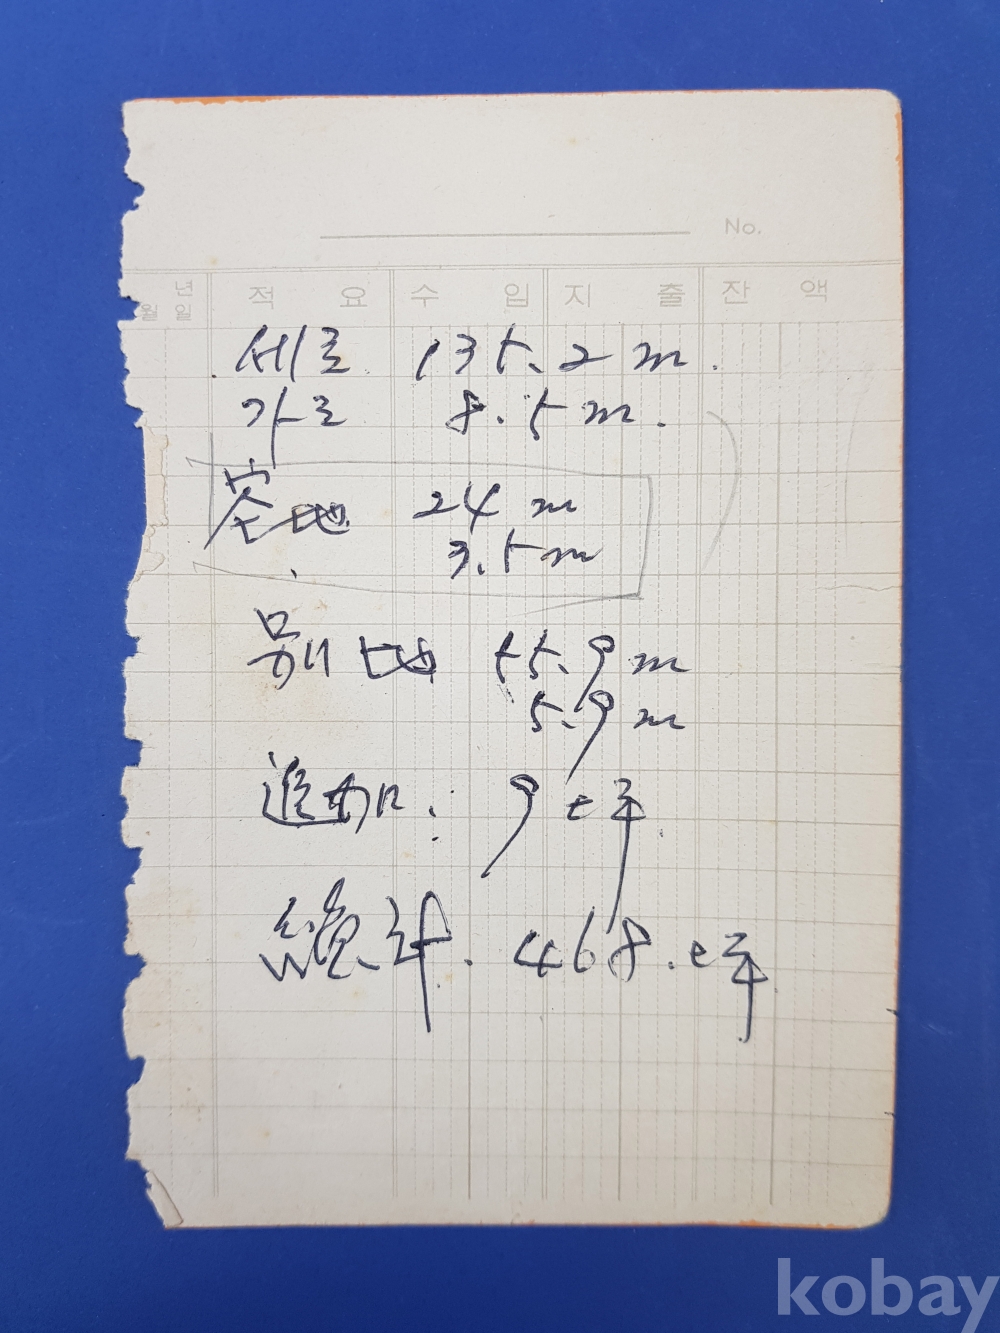 No.
년
월 일
적 요 수 입 지 출 잔 액
세로 135.2 m.
가로 8.5 m.
空地 24 m
3.5 m
別地 55.9 m
5.9 m
追加: 9坪.
總計. 468.坪.
kobay